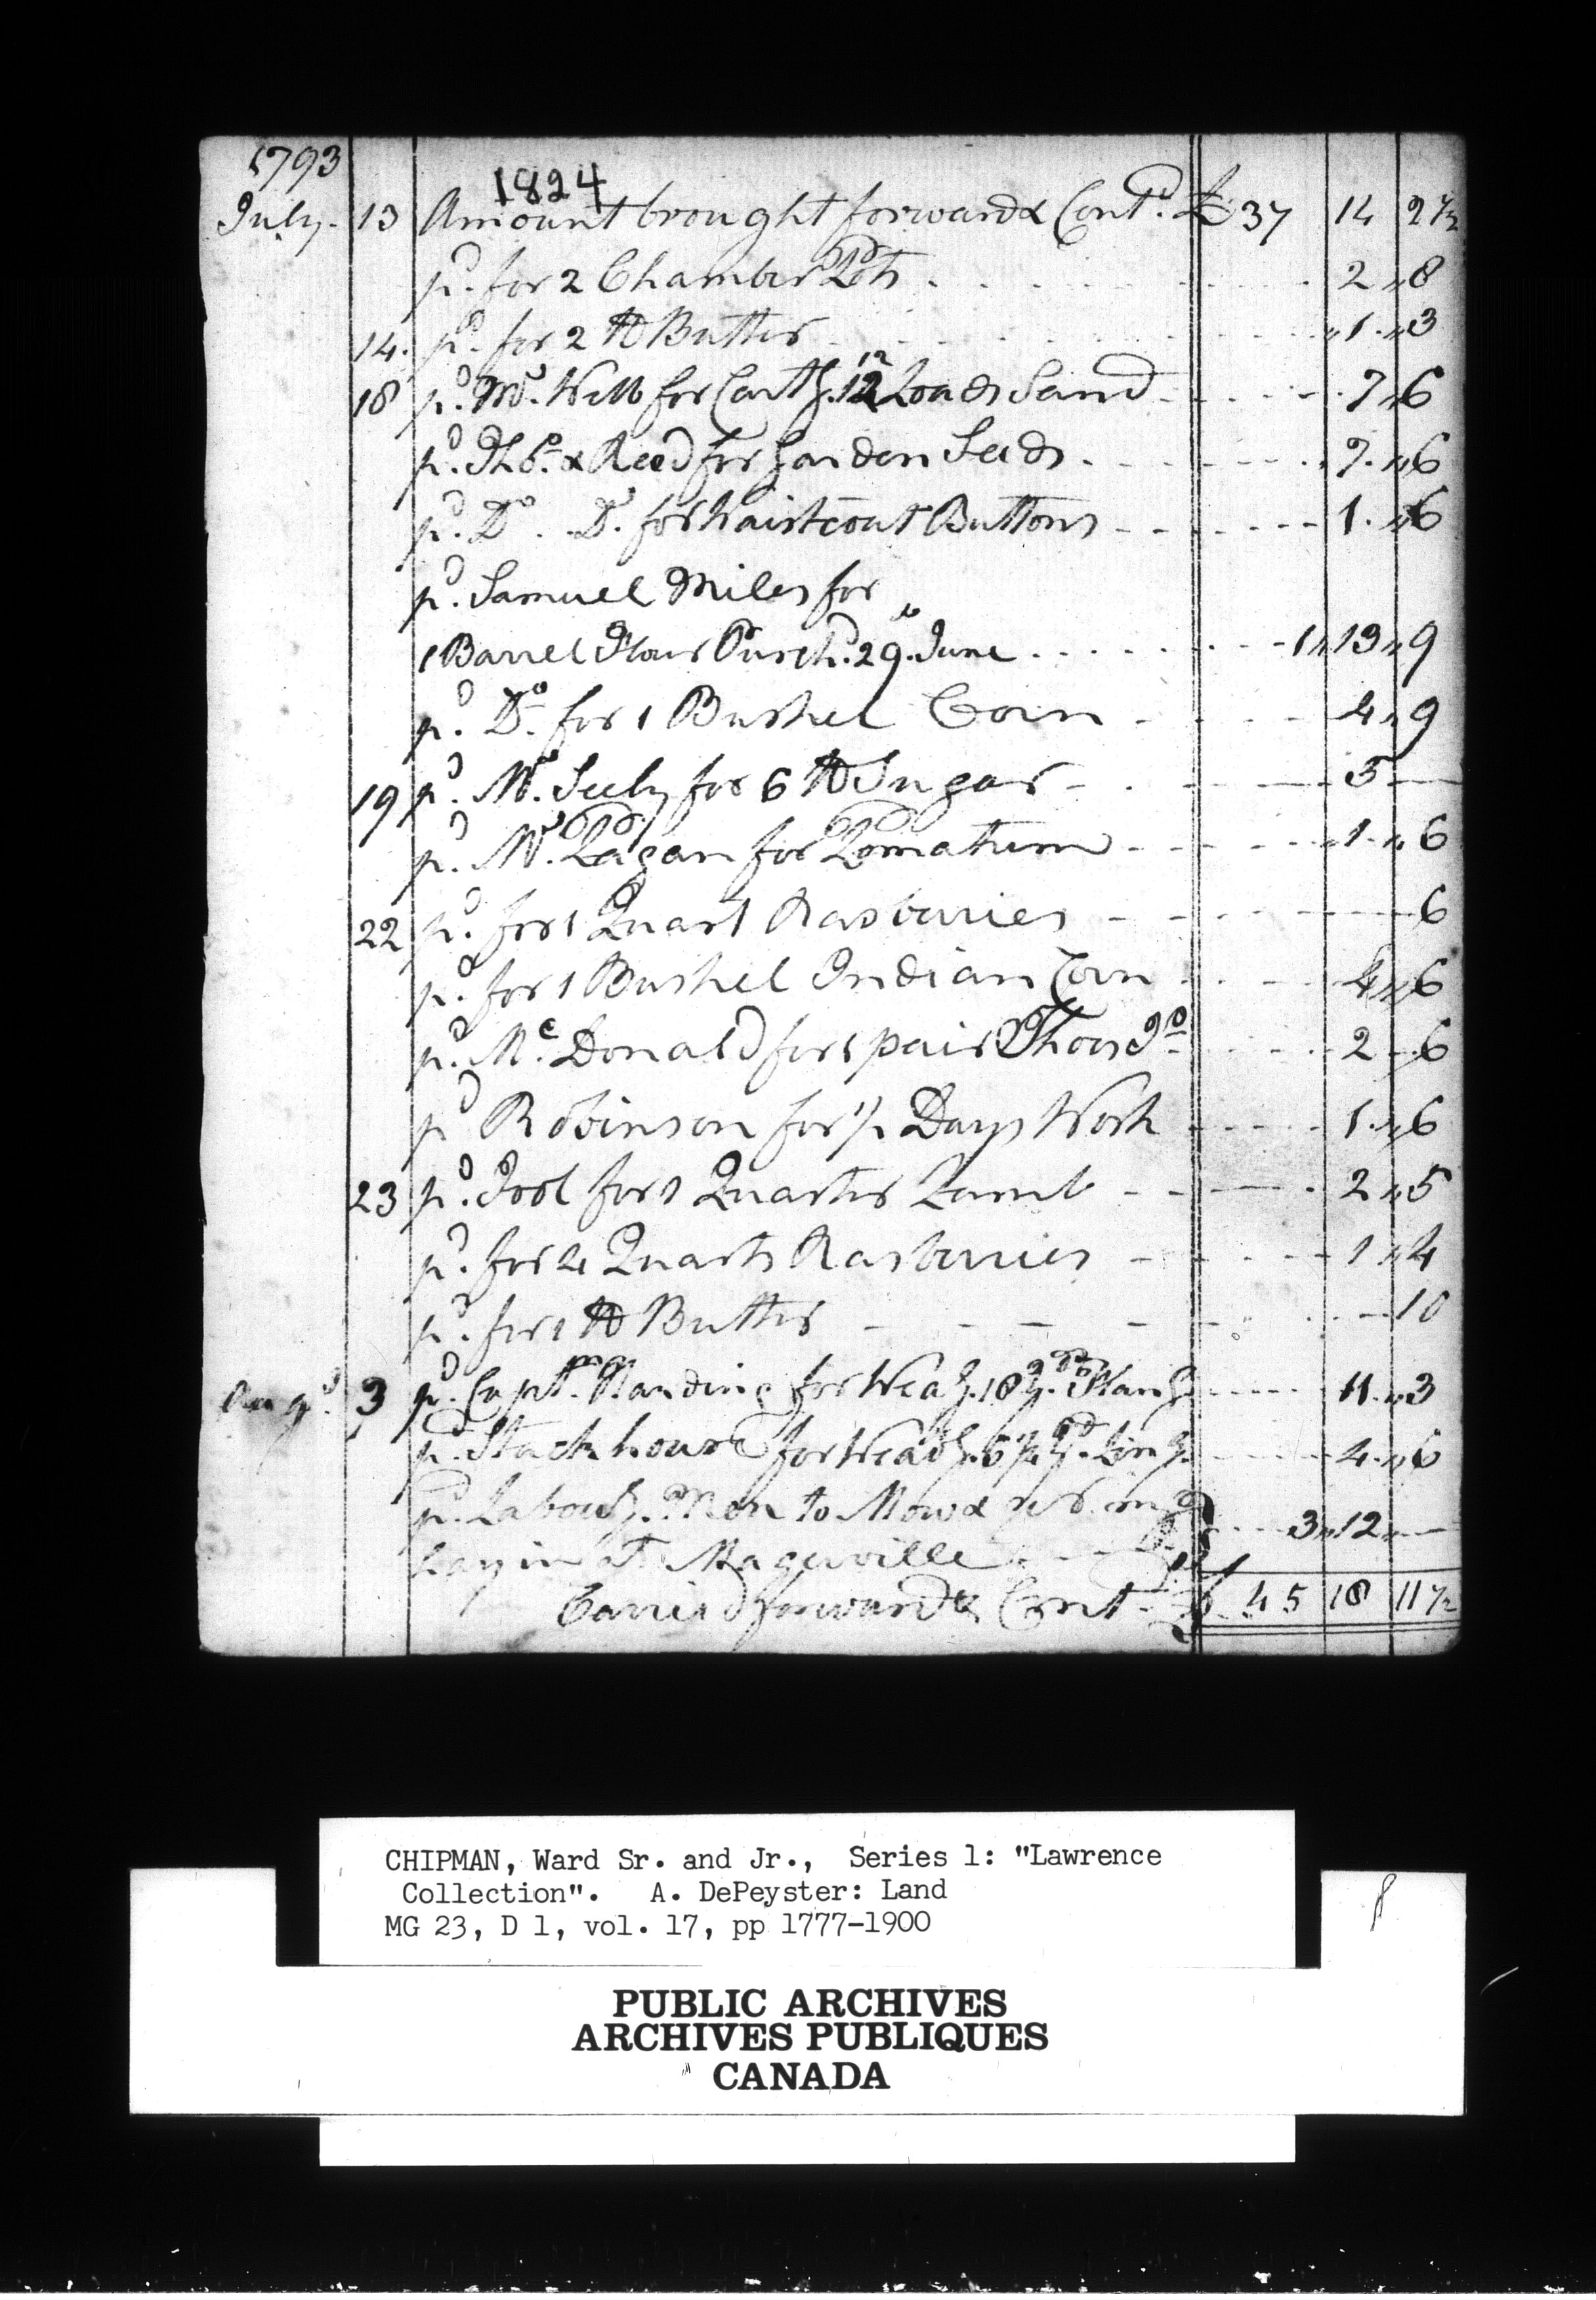 1793
1824
July. 13 Amount brought forward & Cont.d £ 37 14 2 ½
p.d for 2 Chamber Pots 2 „ 8
14. p.d for 2 lb Butter „ 1 „ 3
18 p.d M.r Webb for Cart.g 12 Loads Sand 7 „ 6
p.d & Reed for Garden Seeds 7 „ 6
p.d D.o D.o for Waistcoat Buttons 1 „ 6
p.d Samuel Miles for
1 Barrel Flour Purch.d 29.th June 1 „ 13 „ 9
p.d D.o for 1 Bushel Corn 4 „ 9
19 p.d M.r Seely for 6 lb Sugar 5 —
p.d M.r Pagan for Pomatum 1 „ 6
22 p.d for 1 Quart Rasberries 6
p.d for 1 Bushel Indian Corn 4 „ 6
p.d M.c Donald for 1 pair Shoes 2 6
p.d Robinson for ½ Days Work 1 „ 6
23 p.d Tool for 1 Quarter Lamb 2 „ 5
p.d for 4 Quarts Rasberries 1 „ 4
p.d for 1 lb Butter 10
Aug.t 3 p.d Capt.n for Weav.g 18 y.ds 11 „ 3
p.d Stackhouse for Weav.g 6 ½ y.ds 4 „ 6
p.d Labour.g Men to Mow &
hay in at Magerville 3 „ 12 „ —
Carried forward & Cont.d £ 45 18 11 ½
CHIPMAN, Ward Sr. and Jr., Series 1: "Lawrence
Collection". A. DePeyster: Land
MG 23, D 1, vol. 17, pp 1777-1900
PUBLIC ARCHIVES
ARCHIVES PUBLIQUES
CANADA